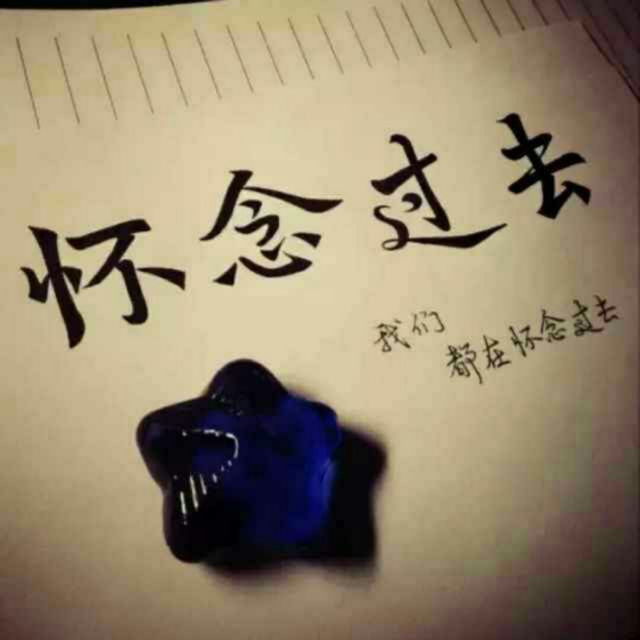 怀念过去
我们
都在怀念过去